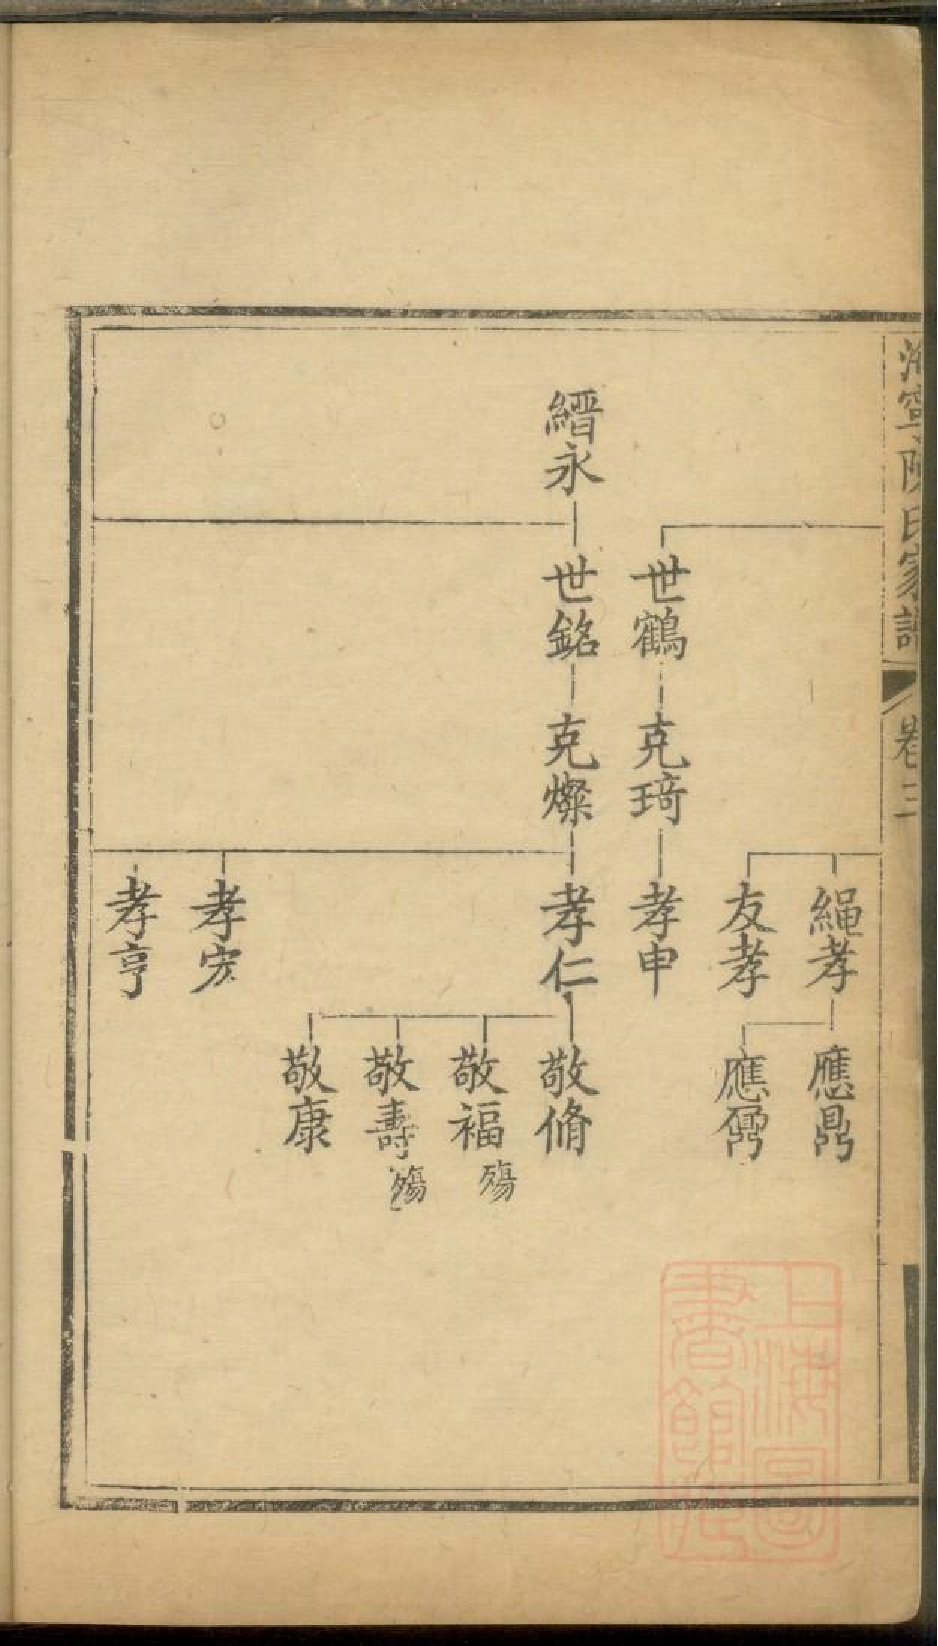 海寧陳氏家譜
卷三
繩孝
應鼎
友孝
應鼐
世鶴
克琦
孝申
縉永
世銘
克燦
孝仁
敬脩
敬福
殤
敬壽
殤
敬康
孝宏
孝亨
上海圖
書館藏